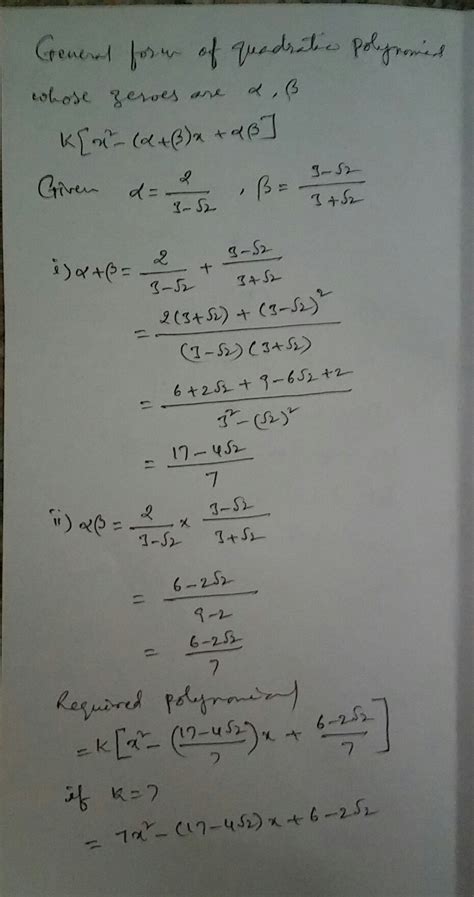 General form of quadratic polynomial
whose zeroes are α, β
K[x²-(α+β)x + αβ]
Given α = 2/(3-√2) , β = (3-√2)/(3+√2)
i) α+β = 2/(3-√2) + (3-√2)/(3+√2)
= (2(3+√2) + (3-√2)²)/((3-√2)(3+√2))
= (6+2√2 + 9-6√2+2)/(3²-(√2)²)
= (17-4√2)/7
ii) αβ = 2/(3-√2) × (3-√2)/(3+√2)
= (6-2√2)/(9-2)
= (6-2√2)/7
Required polynomial
= K[x² - ((17-4√2)/7)x + (6-2√2)/7]
if K=7
= 7x² - (17-4√2)x + 6-2√2